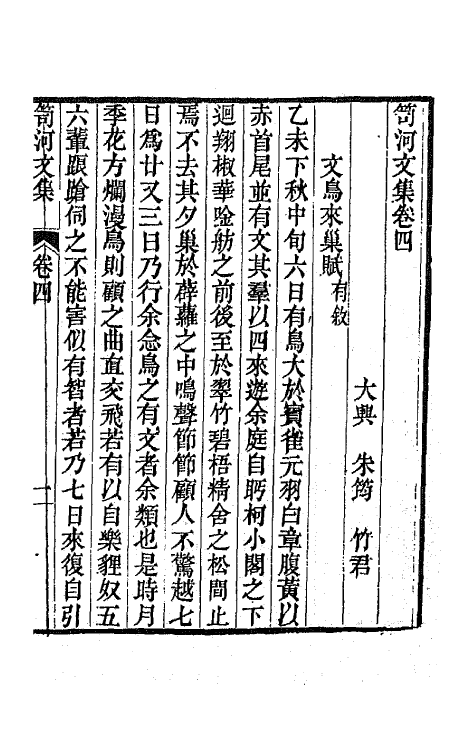 笥河文集卷四
大興 朱筠 竹君
文鳥來巢賦有敘
乙未下秋中旬六日有鳥大於賓雀元羽白章腹黃以
赤首尾並有文其羣以四來遊余庭自眄柯小閣之下
迴翔椒華唫舫之前後至於翠竹碧梧精舍之松間止
焉不去其夕巢於薜蘿之中鳴聲節節顧人不驚越七
日爲廿又三日乃行余念鳥之有文者余類也是時月
季花方爛漫鳥則顧之曲直交飛若有以自樂貍奴五
六輩踉蹌伺之不能害似有智者若乃七日來復自引
笥河文集 卷四 一